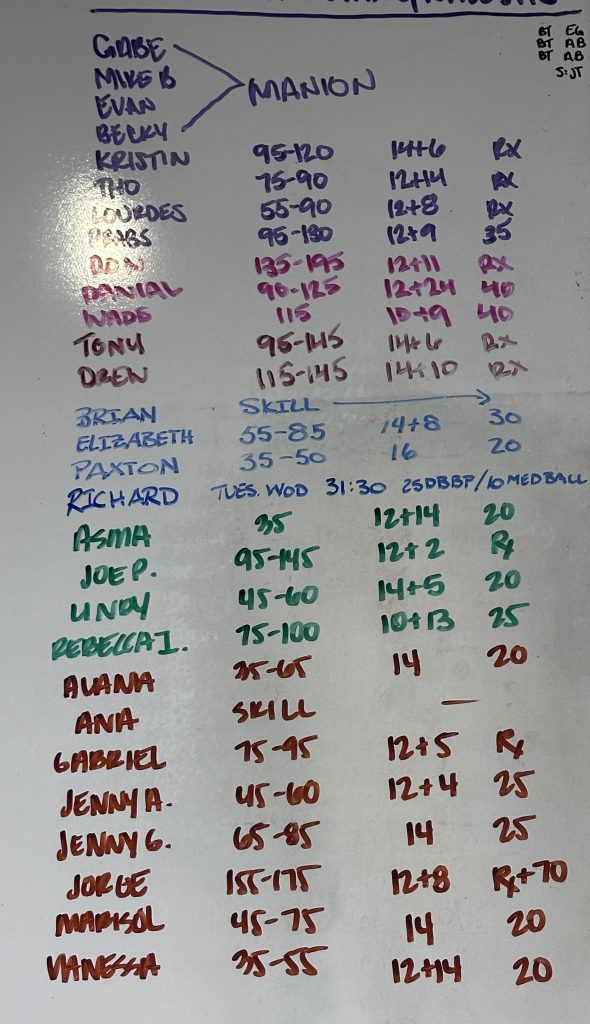 BT EG
BT AB
BT AB
S:JT
GABE
MIKE B
EVAN
BECKY
MANION
KRISTIN 95-120 14+6 Rx
THO 75-90 12+14 Rx
LOURDES 55-90 12+8 Rx
PRABS 95-130 12+9 35
RON 135-195 12+11 Rx
DANIAL 90-125 12+24 40
WADE 115 10+9 40
TONY 95-145 14+6 Rx
DREN 115-145 14+10 Rx
BRIAN SKILL
ELIZABETH 55-85 14+8 30
PAXTON 35-50 16 20
RICHARD TUES. WOD 31:30 25DBBP/10MEDBALL
ASMA 35 12+14 20
JOE P. 95-145 12+2 Rx
LINDY 45-60 14+5 20
REBECCA I. 75-100 10+13 25
ALANA 35-65 14 20
ANA SKILL —
GABRIEL 75-95 12+5 Rx
JENNY A. 45-60 12+4 25
JENNY G. 65-85 14 25
JORGE 155-175 12+8 Rx+70
MARISOL 45-75 14 20
VANESSA 35-55 12+14 20